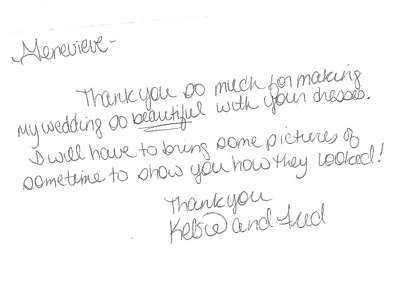 Genevieve-
Thank you so much for making
my wedding so beautiful with your dresses.
I will have to bring some pictures of
sometime to show you how they looked!
Thank you
Kelsie and Fred